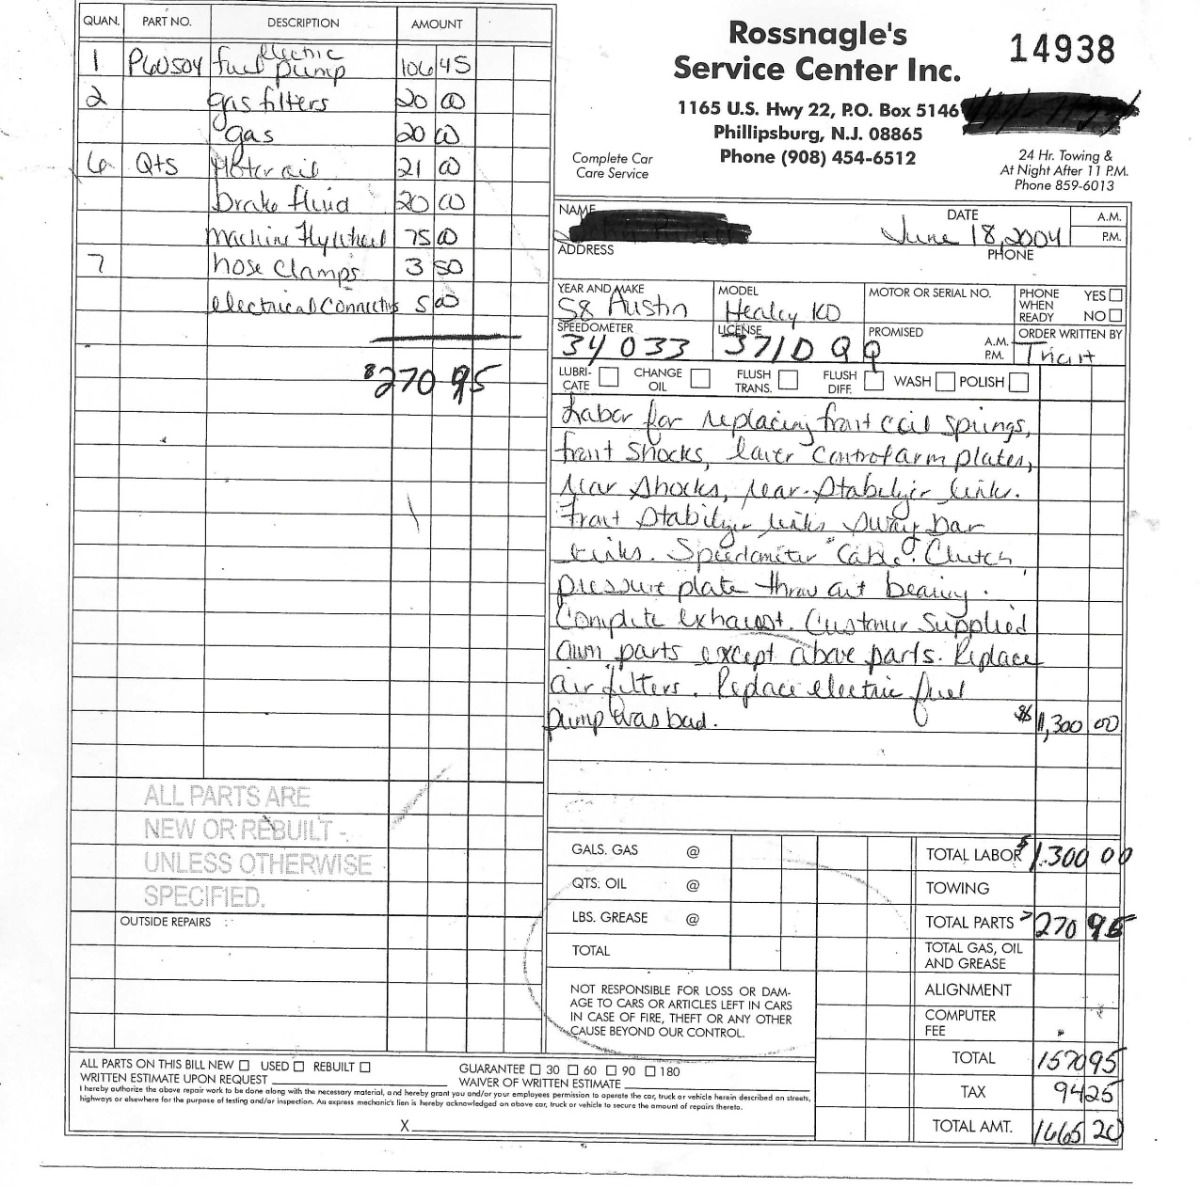 Rossnagle's
Service Center Inc.
14938
1165 U.S. Hwy 22, P.O. Box 5146
Phillipsburg, N.J. 08865
Phone (908) 454-6512
Complete Car
Care Service
24 Hr. Towing &
At Night After 11 P.M.
Phone 859-6013
QUAN. PART NO. DESCRIPTION AMOUNT
electric
1 P60504 fuel pump 106 45
2 gas filters 20 00
gas 20 00
6 Qts Motor oil 21 00
brake fluid 20 00
machine flywheel 75 00
7 hose clamps 3 50
electrical Connectors 5 00
$270 95
ALL PARTS ARE
NEW OR REBUILT -
UNLESS OTHERWISE
SPECIFIED.
OUTSIDE REPAIRS
NAME
DATE
June 18, 2004
A.M.
P.M.
ADDRESS
PHONE
YEAR AND MAKE
58 Austin
MODEL
Healey
MOTOR OR SERIAL NO.
PHONE
WHEN
READY
YES
NO
SPEEDOMETER
34 033
LICENSE
371D QQ
PROMISED
A.M.
P.M.
ORDER WRITTEN BY
LUBRI-
CATE
CHANGE
OIL
FLUSH
TRANS.
FLUSH
DIFF.
WASH
POLISH
Labor for replacing front coil springs,
front shocks, lower control arm plates,
rear shocks, rear stabilizer links.
Front stabilizer links sway bar
links. Speedometer Cable. Clutch,
pressure plate throw out bearing.
Complete exhaust. Customer supplied
own parts except above parts. Replace
air filters. Replace electric fuel
pump was bad. $1,300 00
GALS. GAS @
QTS. OIL @
LBS. GREASE @
TOTAL
NOT RESPONSIBLE FOR LOSS OR DAM-
AGE TO CARS OR ARTICLES LEFT IN CARS
IN CASE OF FIRE, THEFT OR ANY OTHER
CAUSE BEYOND OUR CONTROL.
TOTAL LABOR $1,300 00
TOWING
TOTAL PARTS 270 95
TOTAL GAS, OIL
AND GREASE
ALIGNMENT
COMPUTER
FEE
TOTAL 1570 95
TAX 94 25
TOTAL AMT. 1665 20
ALL PARTS ON THIS BILL NEW USED REBUILT
GUARANTEE 30 60 90 180
WRITTEN ESTIMATE UPON REQUEST
WAIVER OF WRITTEN ESTIMATE
I hereby authorize the above repair work to be done along with the necessary material, and hereby grant you and/or your employees permission to operate the car, truck or vehicle herein described on streets,
highways or elsewhere for the purpose of testing and/or inspection. An express mechanic's lien is hereby acknowledged on above car, truck or vehicle to secure the amount of repairs thereto.
X